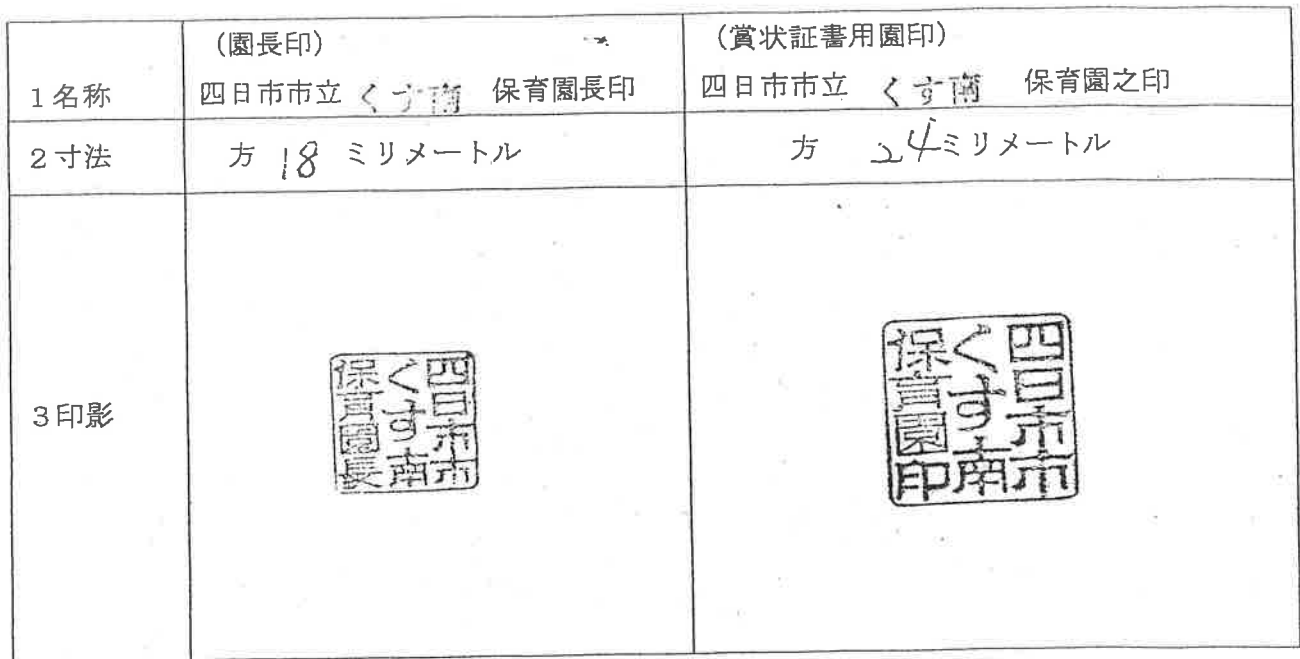 (園長印)
(賞状証書用園印)
1名称
四日市市立 くす南 保育園長印
四日市市立 くす南 保育園之印
2寸法
方 18 ミリメートル
方 24ミリメートル
3印影
四日市市
くす南
保育園長
四日市市
くす南
保育園印